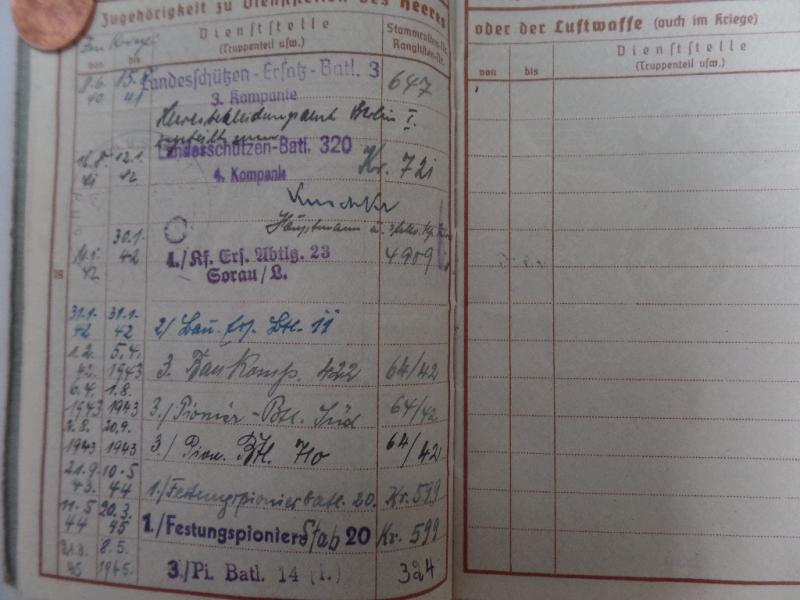 Zugehörigkeit zu Dienststellen des Heeres
Im Kriege
von bis
Dienststelle
(Truppenteil usw.)
Stammrollen-Nr.
Ranglisten-Nr.
8.6. 15.8. Landesschützen-Ersatz-Batl. 3 647
40 41 3. Kompanie
Heeresbekleidungsamt Berlin I.
16.8. 12.1. Landesschützen-Batl. 320 Kr. 721
41 42 4. Kompanie
Hauptmann u.
30.1.
14.1. 42 4./Kf. Ers. Abtlg. 23 4909
42 Sorau/L.
18
31.1. 31.1.
42 42 2/ Bau. Ers. Btl. 11
1.2. 5.4.
42. 1943 3. Bau Komp. 422 64/42
6.4. 1.8.
1943 1943 3./ Pionier-Btl. Süd 64/42
2.8. 20.9.
1943 1943 3/ Pion. Btl. 710 64/42
21.9. 10.5
43. 44 1./Festungspionierbatl. 20. Kr. 599
11.5 20.3.
44 45 1./FestungspionierStab 20 Kr. 599
21.3. 8.5.
45 1945. 3./Pi. Batl. 14 (I.) 324
oder der Luftwaffe (auch im Kriege)
von bis
Dienststelle
(Truppenteil usw.)